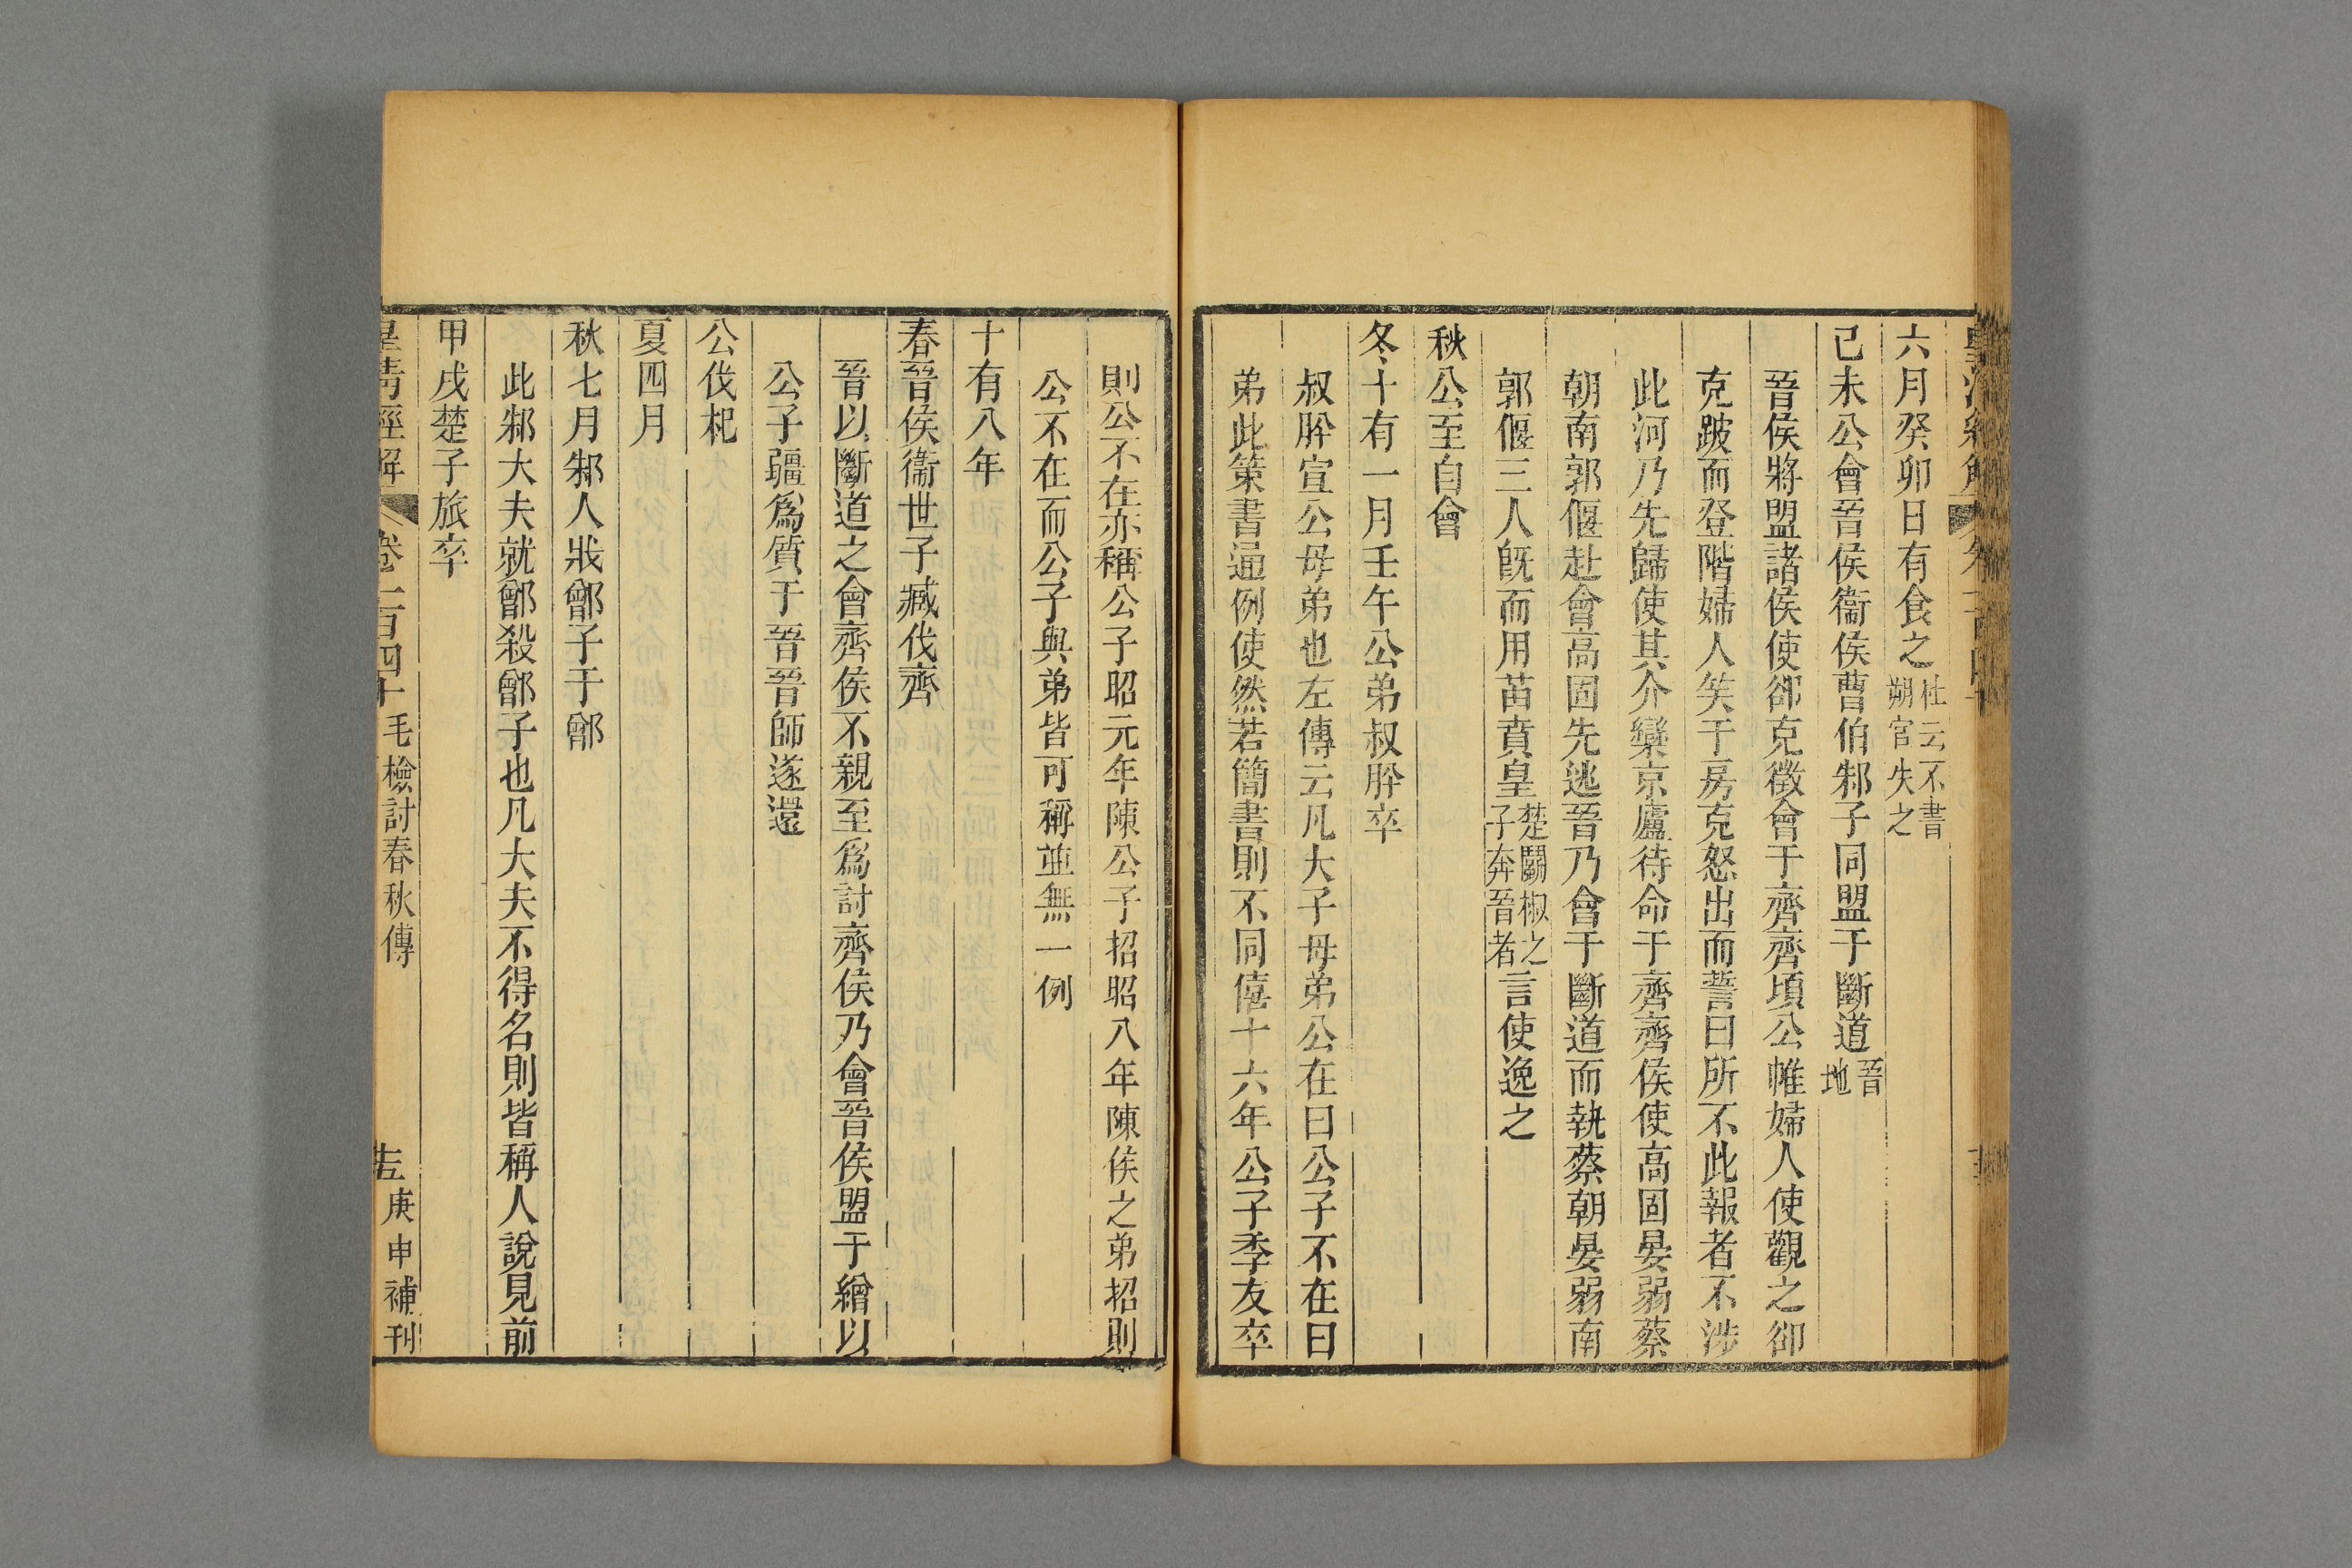 六月癸卯日有食之杜云不書朔官失之
己未公會晉侯衞侯曹伯邾子同盟于斷道晉地
晉侯將盟諸侯使郤克徵會于齊齊頃公帷婦人使觀之郤
克跛而登階婦人笑于房克怒出而誓曰所不此報者不涉
此河乃先歸使其介欒京廬待命于齊齊侯使高固晏弱蔡
朝南郭偃赴會高固先逃晉乃會于斷道而執蔡朝晏弱南
郭偃三人旣而用苗賁皇楚鬬椒之子奔晉者言使逸之
秋公至自會
冬十有一月壬午公弟叔肸卒
叔肸宣公母弟也左傳云凡大子母弟公在曰公子不在曰
弟此策書通例使然若簡書則不同僖十六年公子季友卒
則公不在亦稱公子昭元年陳公子招昭八年陳侯之弟招則
公不在而公子與弟皆可稱並無一例
十有八年
春晉侯衞世子臧伐齊
晉以斷道之會齊侯不親至爲討齊侯乃會晉侯盟于繒以
公子彊爲質于晉晉師遂還
公伐杞
夏四月
秋七月邾人戕鄫子于鄫
此邾大夫就鄫殺鄫子也凡大夫不得名則皆稱人說見前
甲戌楚子旅卒
皇清經解 卷一百四十 毛檢討春秋傳 庚申補刊